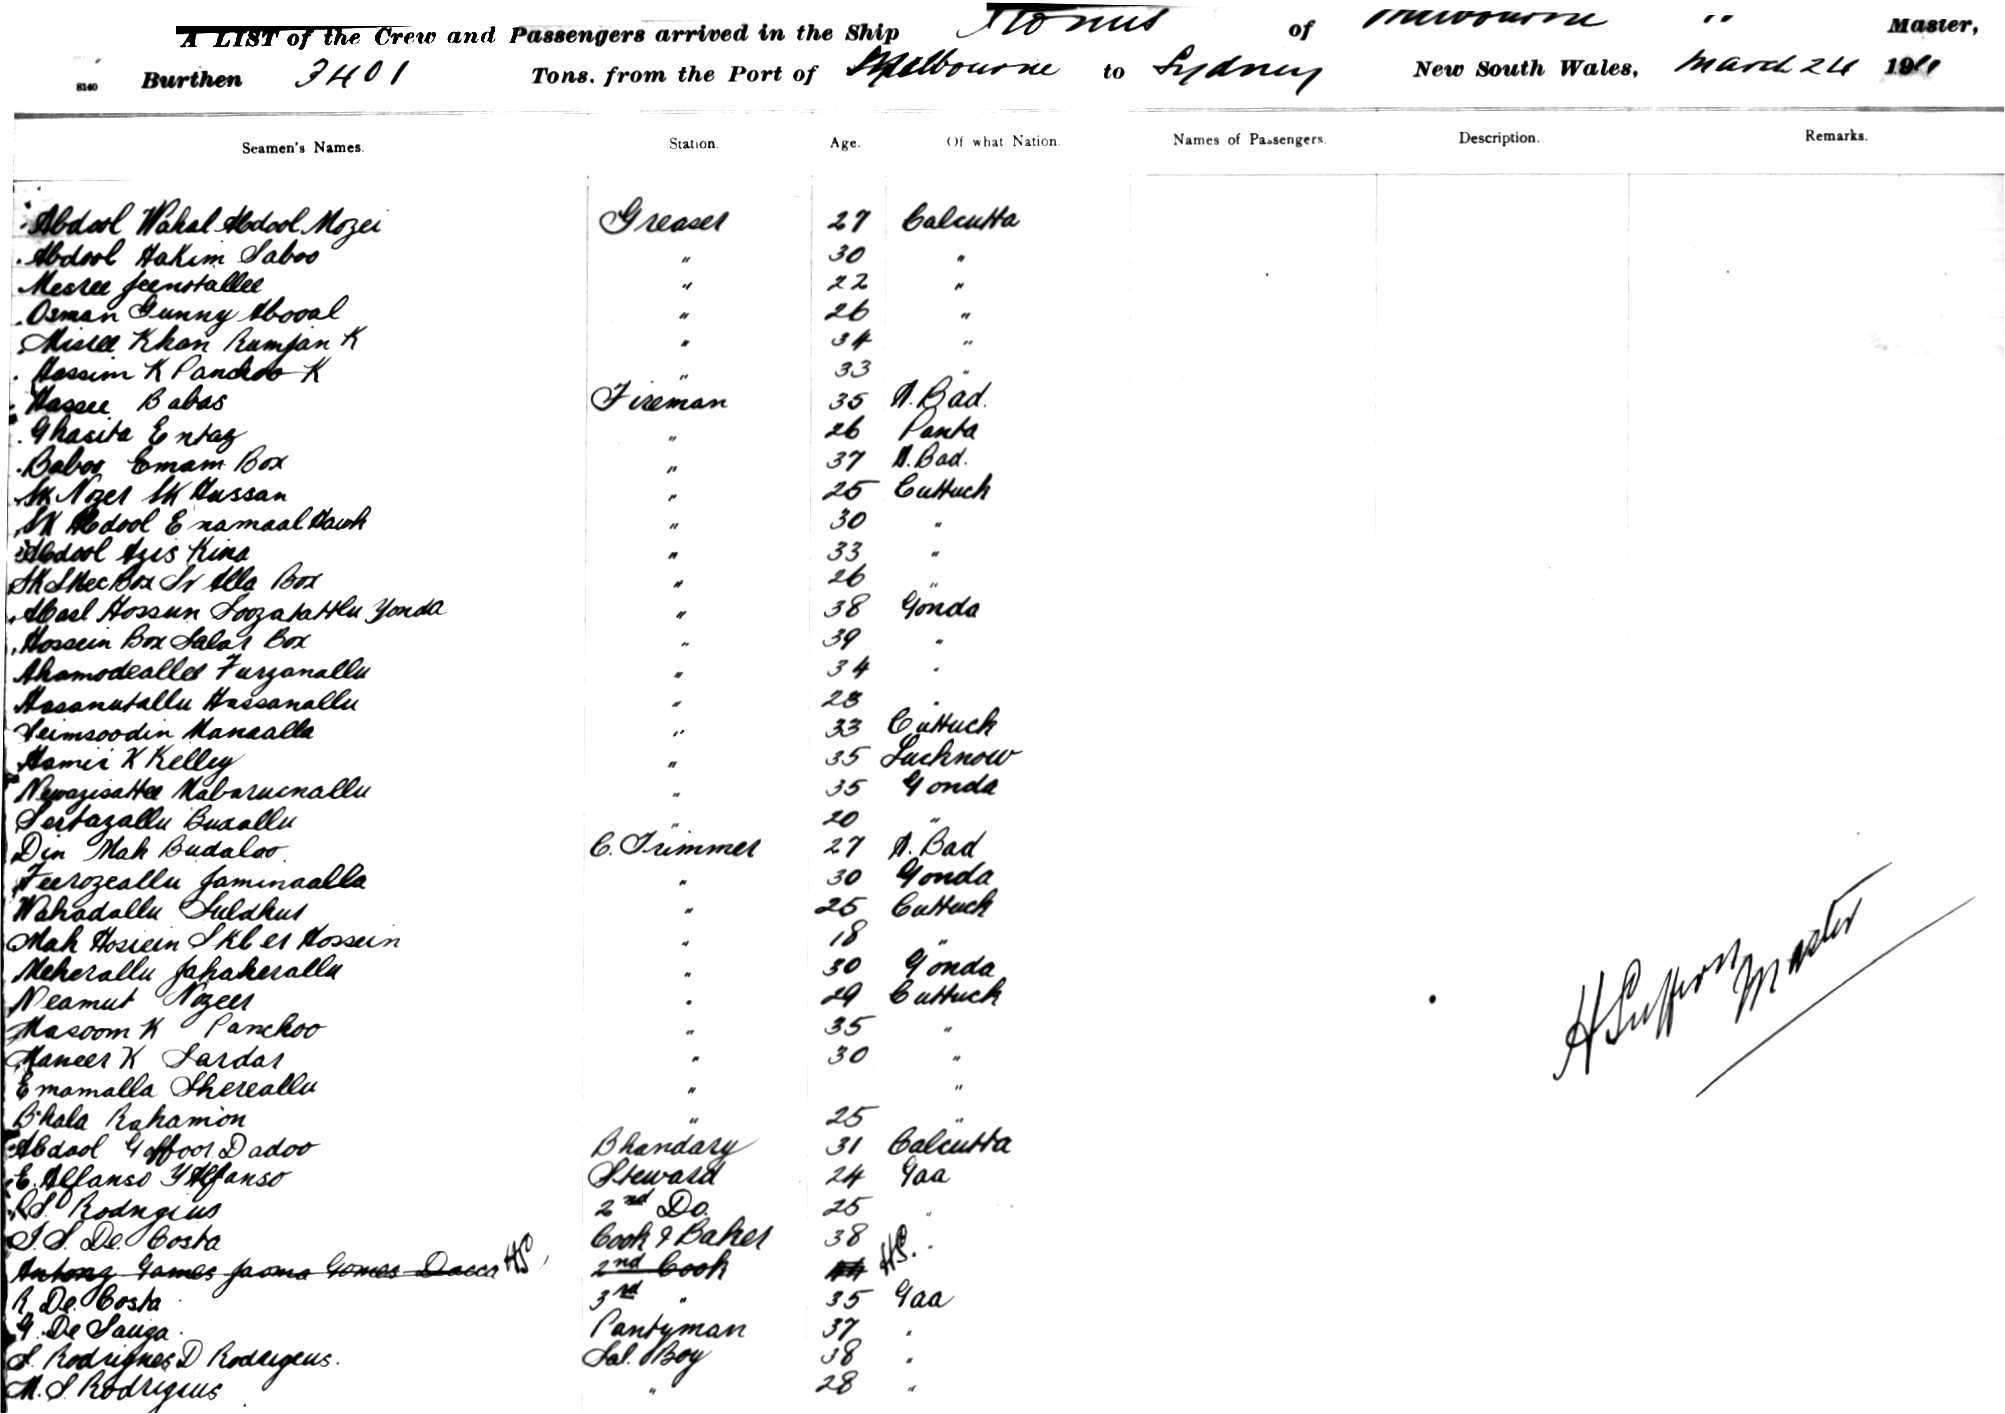 A LIST of the Crew and Passengers arrived in the Ship of Melbourne " Master,
8140 Burthen 3401 Tons. from the Port of Melbourne to Sydney New South Wales, March 24 19
Seamen's Names. Station. Age. Of what Nation. Names of Passengers. Description. Remarks.
Abdool Wahal Abdool Mozei Greaser 27 Calcutta
Abdool Hakim Saboo " 30 "
Mesree Jeenotallee " 22 "
Osman Gunny Abooal " 26 "
Misree Khan Rumjan K " 34 "
Hassim K Panchoo K " 33 "
Hassee Babas Fireman 35 A. Bad.
Ghasita Entaz " 26 Panta
Baboo Emam Box " 37 A. Bad.
SK Nozer SK Hassan " 25 Cuttuck
SK Abdool Enamaal Hawk " 30 "
Abdool Azis Kina " 33 "
SK SKee Box Sr Alla Box " 26 "
Abasl Hossun Yonda " 38 Gonda
Hossein Box Salar Box " 39 "
Ahamodeallee Furzanallu " 34 "
Hasanutallu Hassanallu " 28 "
Manaalla " 33 Cuttuck
Hamir K Kelley " 35 Lucknow
Newazisattee Mabarucnallu " 35 Gonda
Sertazallu Buxallu " 20 "
Din Mah Budaloo C. Trimmer 27 A. Bad
Feerozeallu Jaminaalla " 30 Gonda
Wahadallu Suldhus " 25 Cuttuck
Mah Hossein Hossein " 18 "
Meherallu Jahakerallu " 30 Gonda
Neamut Nozeer " 29 Cuttuck
Masoom K Panchoo " 35 "
Maneer K Sardar " 30 "
Emamalla Shereallu " "
Bhala Rahamon " 25 "
Abdool Goffoor Dadoo Bhandary 31 Calcutta
E. Alfanso Y Alfanso Steward 24 Gaa
R S. Rodrigius 2nd Do. 25 "
S. S. De. Costa Cook & Baker 38 "
Antony Gomes Jaoma Gomes Dacca HS 2nd Cook HS.
R. De. Costa 3rd " 35 Gaa
G. De Sauza Pantyman 37 "
S. Rodrignes D Rodrigeus. Sal. Boy 38 "
M. S. Rodrigius " 28 "
H Suffern Master